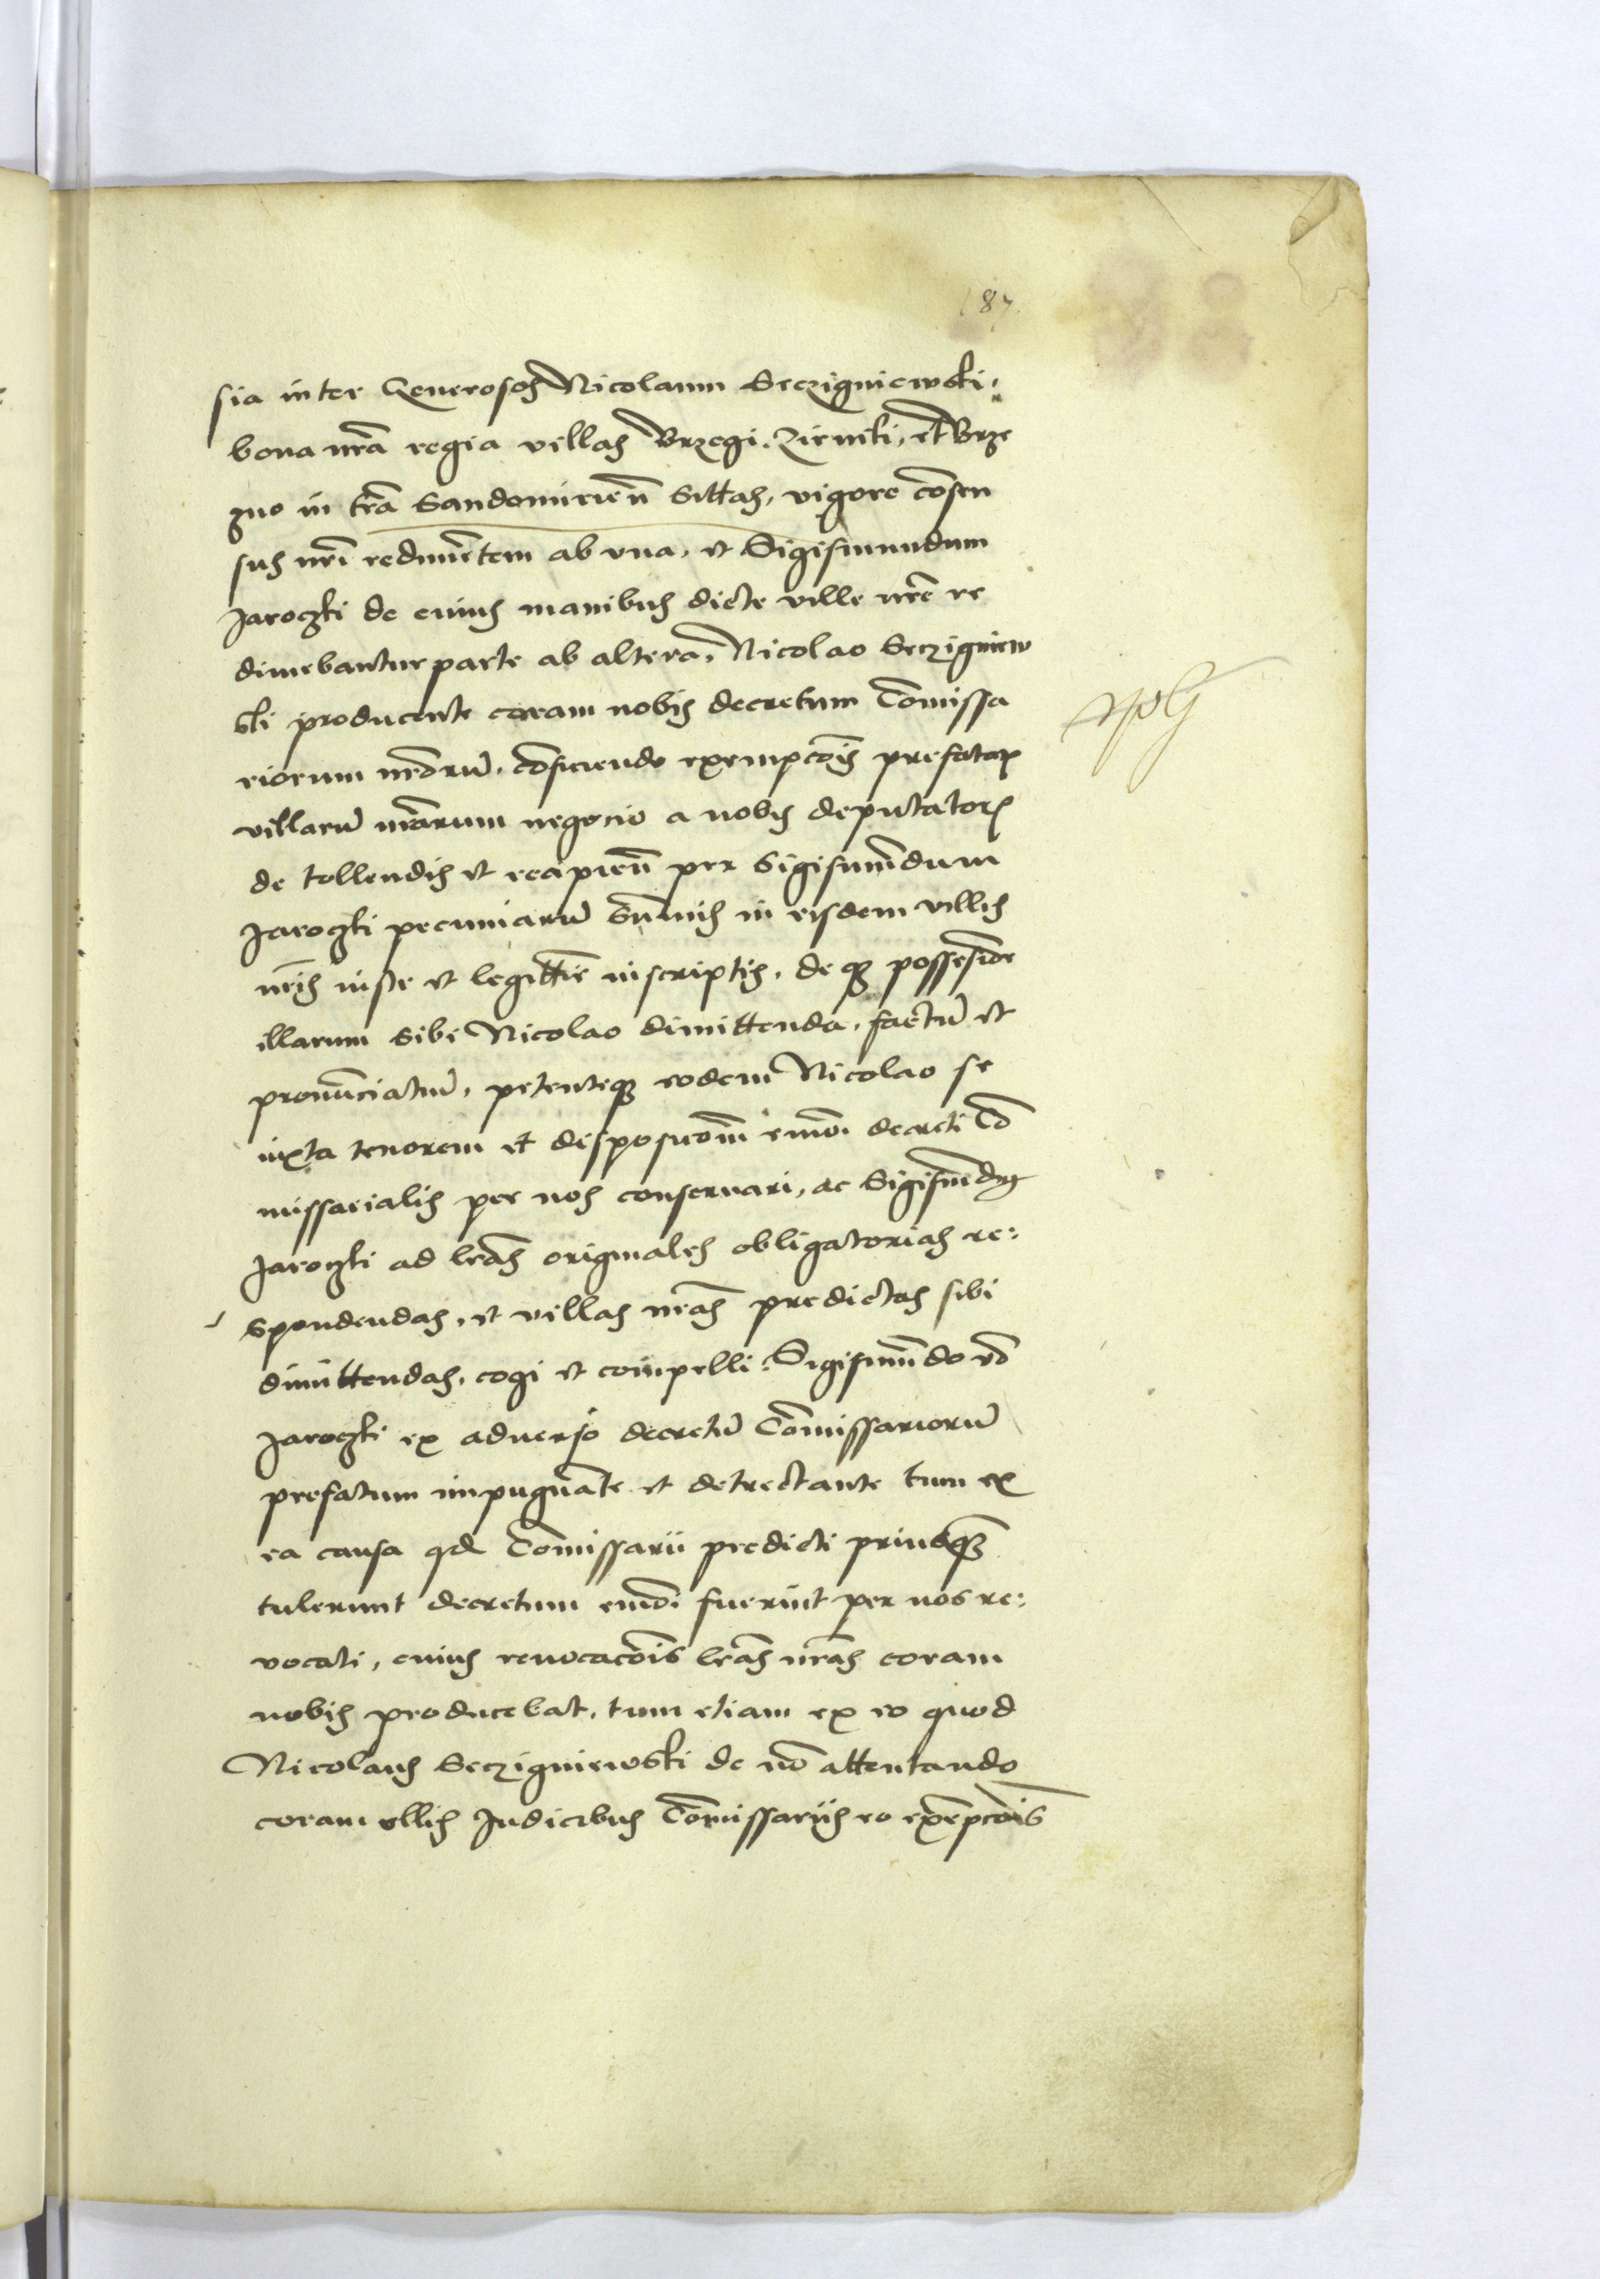 187.
sia inter Generosos Nicolaum Seczigniewski
bona nrã regia villas Brzegi. Zirniki, et Brze
zno in trã Sandomirieñ Sittas, vigore cõsen
sus nrĩ redimẽtem ab vna, et Sigismundum
Jaroczki de cuius manibus dicte ville nrẽ re
dimebantur parte ab altera, Nicolao Seczigniew
ski producente coram nobis decretum Cõmissa
riorum nrõrũ, cõficiendo exempcõis prefatarꝫ
villarũ nrãrum negocio a nobis deputatorꝫ
de tollendis et recipieñ per Sigismũdum
Jaroczki pecuniarũ sũmis in eisdem villis
nrĩs iuste et legittĩe inscriptis, de qꝫ possessiõe
illarum sibi Nicolao dimittenda, factũ et
pronũciatũ, petenteqꝫ eodem Nicolao se
iuxta tenorem et disposicõm eiusdõi decreti Cõ
missarialis per nos conservari, ac Sigismũdũ
Jaroczki ad lrãs originales obligatorias re:
spondendas, et villas nrãs predictas sibi
dimittendas, cogi et compelli. Sigismũdo vẽo
Jaroczki ex adverso decretũ Cõmissariorũ
prefatum impugnãte et detrectante tum ex
ea causa qd Cõmissarii predicti priusqꝫ
tulerunt decretum eiusdõi fuerint per nos re:
vocati, cuius revocacõis lrãs nrãs coram
nobis producebat, tum etiam ex eo quod
Nicolaus Seczigniewski de nõ attentando
coram ullis Judicibus Cõmissariis eo exẽpcõis